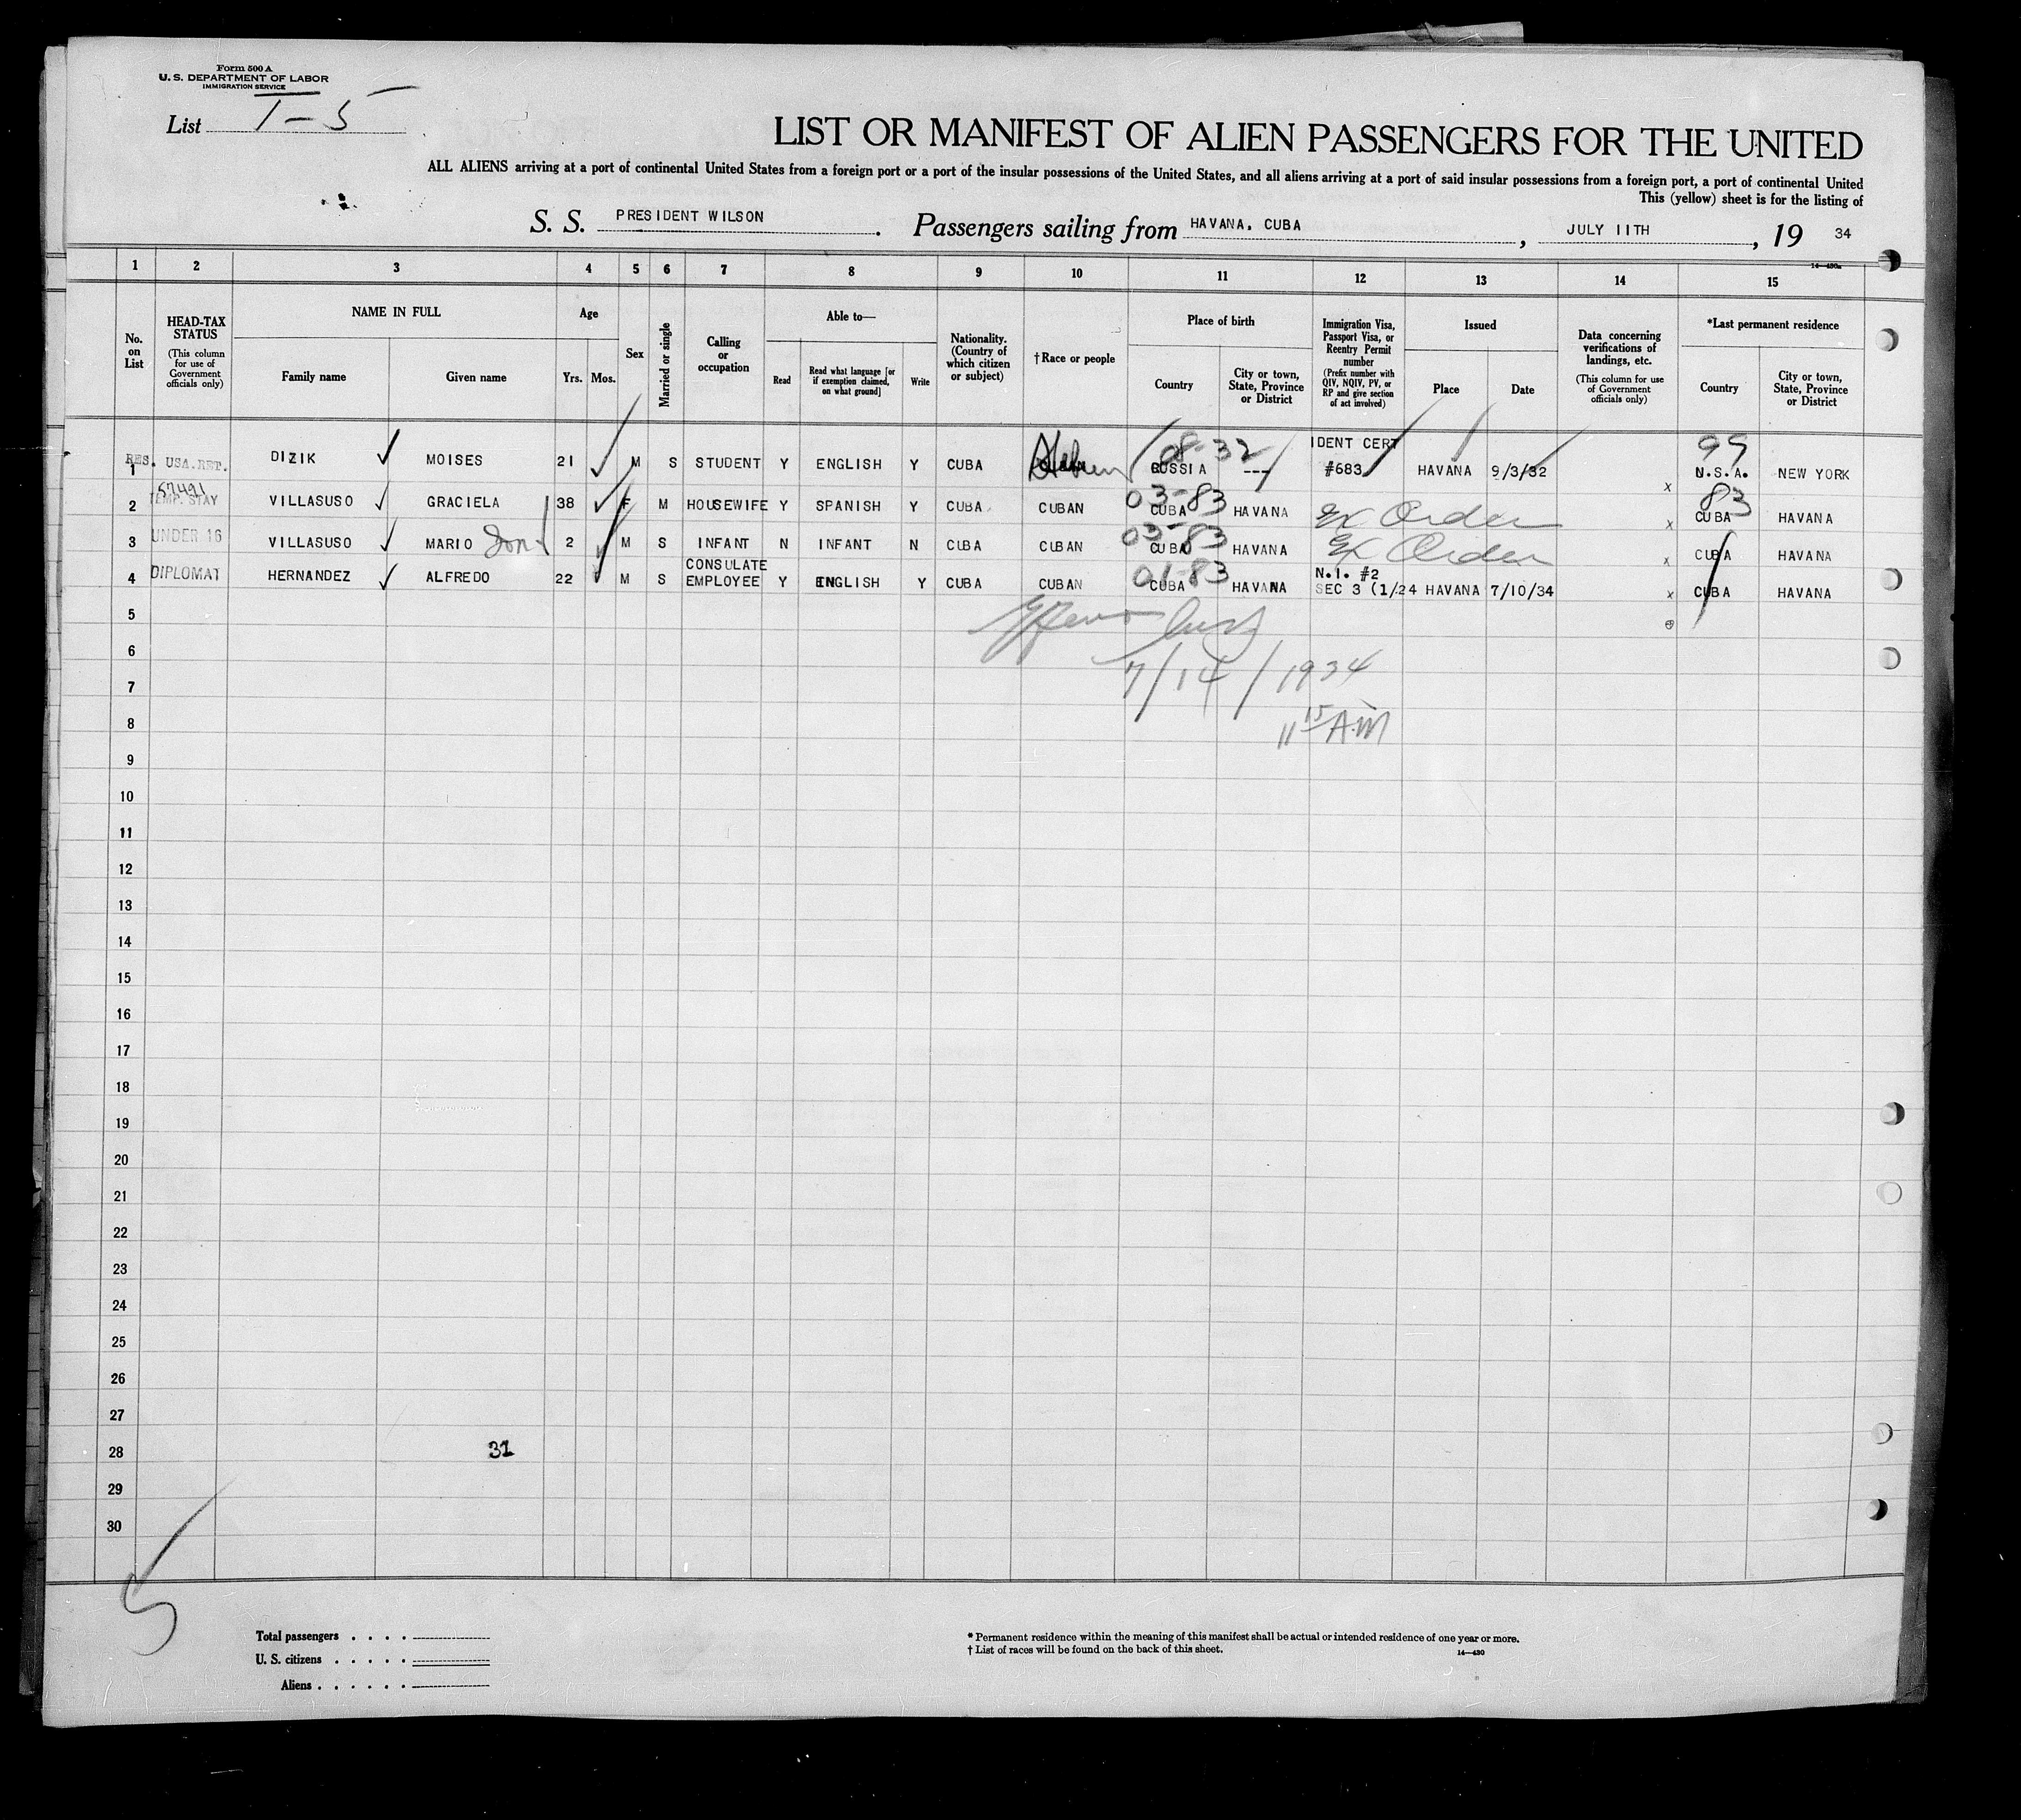 Form 500 A
U. S. DEPARTMENT OF LABOR
IMMIGRATION SERVICE
List 1-5
LIST OR MANIFEST OF ALIEN PASSENGERS FOR THE UNITED
ALL ALIENS arriving at a port of continental United States from a foreign port or a port of the insular possessions of the United States, and all aliens arriving at a port of said insular possessions from a foreign port, a port of continental United
This (yellow) sheet is for the listing of
S. S. PRESIDENT WILSON. Passengers sailing from HAVANA, CUBA, JULY 11TH, 19 34
14—430a
1 2 3 4 5 6 7 8 9 10 11 12 13 14 15
No. on List
HEAD-TAX STATUS (This column for use of Government officials only)
NAME IN FULL
Family name Given name
Age
Yrs. Mos.
Sex
Married or single
Calling or occupation
Able to—
Read
Read what language [or if exemption claimed, on what ground]
Write
Nationality. (Country of which citizen or subject)
† Race or people
Place of birth
Country
City or town, State, Province or District
Immigration Visa, Passport Visa, or Reentry Permit number (Prefix number with QIV, NQIV, PV, or RP and give section of act involved)
Issued
Place Date
Data concerning verifications of landings, etc. (This column for use of Government officials only)
*Last permanent residence
Country
City or town, State, Province or District
1 RES. USA.RET. DIZIK MOISES 21 M S STUDENT Y ENGLISH Y CUBA Hebrew 08-32 RUSSIA --- IDENT CERT #683 HAVANA 9/3/32 99 U.S.A. NEW YORK
2 57491 TEMP. STAY VILLASUSO GRACIELA 38 F M HOUSEWIFE Y SPANISH Y CUBA CUBAN 03-83 CUBA HAVANA Ex Order x 83 CUBA HAVANA
3 UNDER 16 VILLASUSO MARIO Son 2 M S INFANT N INFANT N CUBA CUBAN 03-83 CUBA HAVANA Ex Order x CUBA HAVANA
4 DIPLOMAT HERNANDEZ ALFREDO 22 M S CONSULATE EMPLOYEE Y ENGLISH Y CUBA CUBAN 01-83 CUBA HAVANA N.I. #2 SEC 3 (1/24 HAVANA 7/10/34 x CUBA HAVANA
5
6
7 7/14/1934
8 11 15 A.M
9
10
11
12
13
14
15
16
17
18
19
20
21
22
23
24
25
26
27
28 31
29
30
5
Total passengers
U. S. citizens
Aliens
* Permanent residence within the meaning of this manifest shall be actual or intended residence of one year or more.
† List of races will be found on the back of this sheet.
14—430